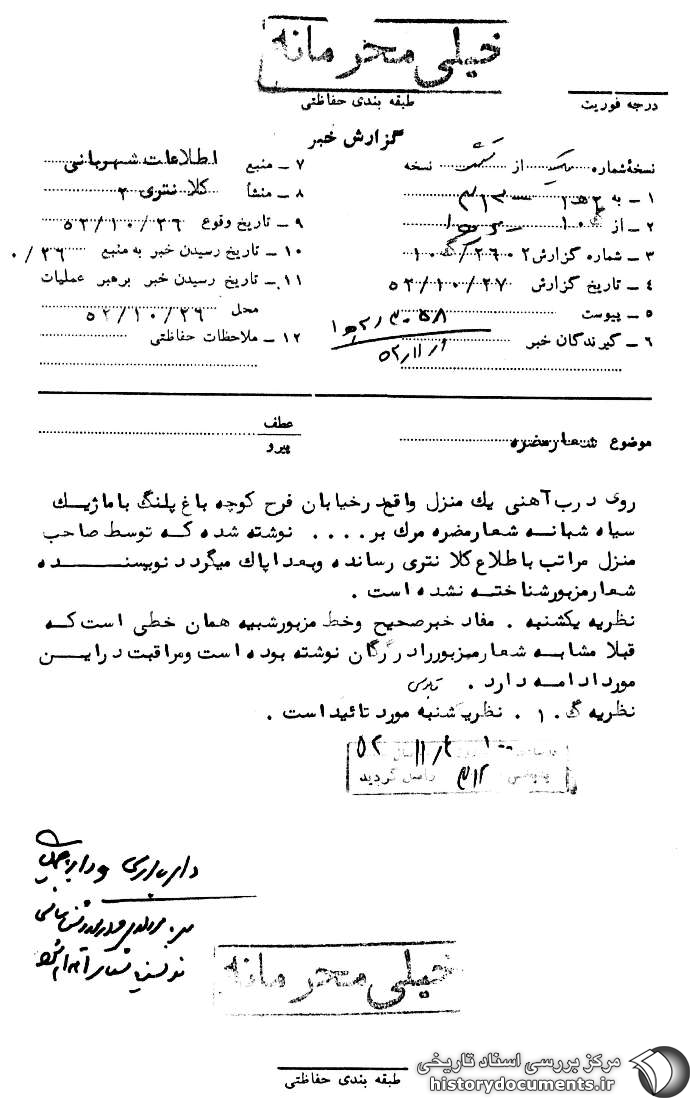 خیلی محرمانه
درجه فوریت
طبقه بندی حفاظتی
گزارش خبر
نسخه شماره یک از شش نسخه
۱ ـ به ۳۱۲
۲ ـ از
۳ ـ شماره گزارش
۴ ـ تاریخ گزارش ۵۲/۱۰/۲۷
۵ ـ پیوست
۶ ـ گیرندگان خبر
۷ ـ منبع اطلاعات شهربانی
۸ ـ منشأ کلانتری ۲
۹ ـ تاریخ وقوع ۵۲/۱۰/۲۶
۱۰ ـ تاریخ رسیدن خبر به منبع
۱۱ ـ تاریخ رسیدن خبر برهبر عملیات
محل ۵۲/۱۰/۲۶
۱۲ ـ ملاحظات حفاظتی
موضوع شعارمضره
عطف
پیرو
روی درب آهنی یک منزل واقع درخیابان فرح کوچه باغ پلنگ با ماژیک
سیاه شبانه شعارمضره مرگ بر.... نوشته شده که توسط صاحب
منزل مراتب باطلاع کلانتری رسانده وبعدا پاک میگردد نویسنده
شعارمزبورشناخته نشده است .
نظریه یکشنبه . مفاد خبرصحیح وخط مزبورشبیه همان خطی است که
قبلا مشابه شعارمیزبورراد رگرگان نوشته بوده است ومراقبت دراین
مورد ادامه دارد .
نظریه گ ۱۰ . نظریه شنبه مورد تائید است .
۳۱۲ واصل گردید
خیلی محرمانه
طبقه بندی حفاظتی
مرکز بررسی اسناد تاریخی
historydocuments.ir